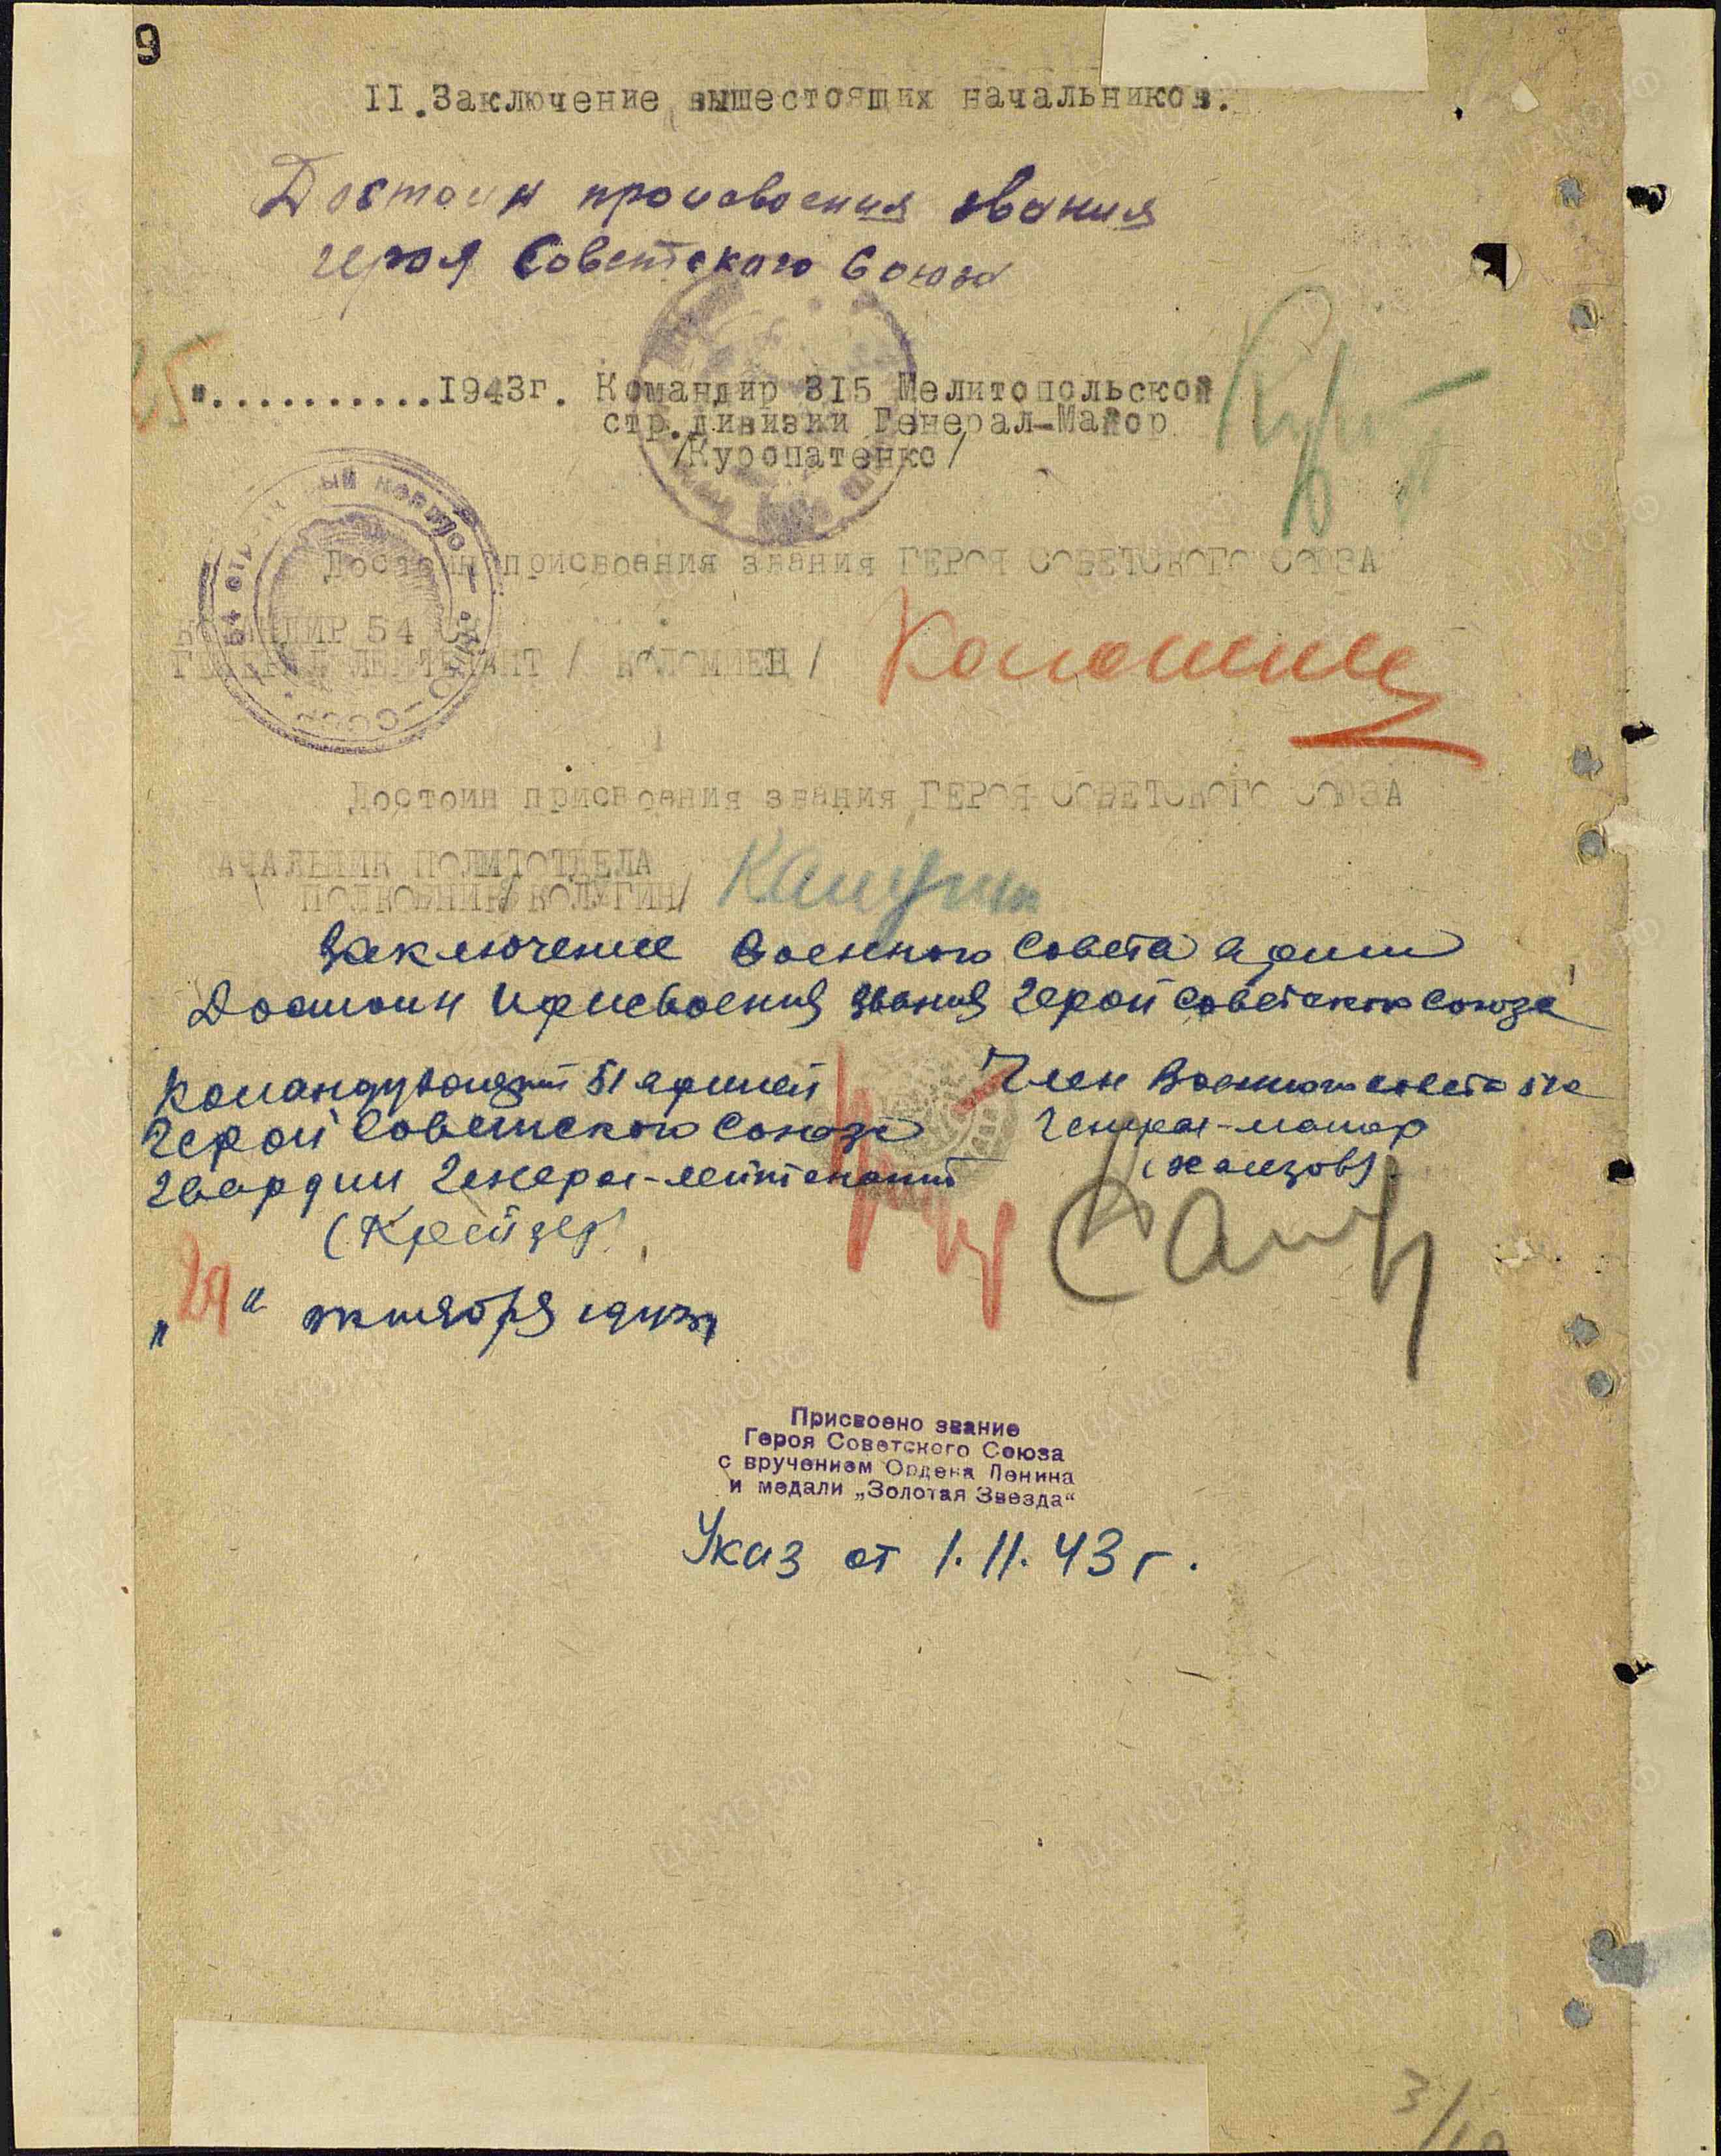 9
II.Заключение вышестоящих начальников.
Достоин присвоения звания
героя Советского Союза
25 "...........1943г. Командир 315 Мелитопольской
стр.дивизии Генерал-Майор
/Куропатенко/
Достоин присвоения звания ГЕРОЯ СОВЕТСКОГО СОЮЗА
КОМАНДИР 54 СК
ГЕНЕРАЛ ЛЕЙТЕНАНТ / КОЛОМИЕЦ / Коломиец
Достоин присвоения звания ГЕРОЯ СОВЕТСКОГО СОЮЗА
АЧАЛЬНИК ПОЛИТОТДЕЛА
ПОЛКОВНИК/ КОЛУГИН/
Заключение Военного Совета армии
Достоин присвоения звания Герой Советского Союза
Командующий 51 армией
Герой Советского Союза
гвардии генерал-лейтенант
(Крейзер)
Член Военного совета 51А
Генерал-майор
(Халезов)
„29“ октября 1943г
Присвоено звание
Героя Советского Союза
с вручением Ордена Ленина
и медали „Золотая Звезда“
Указ от 1.11.43г.